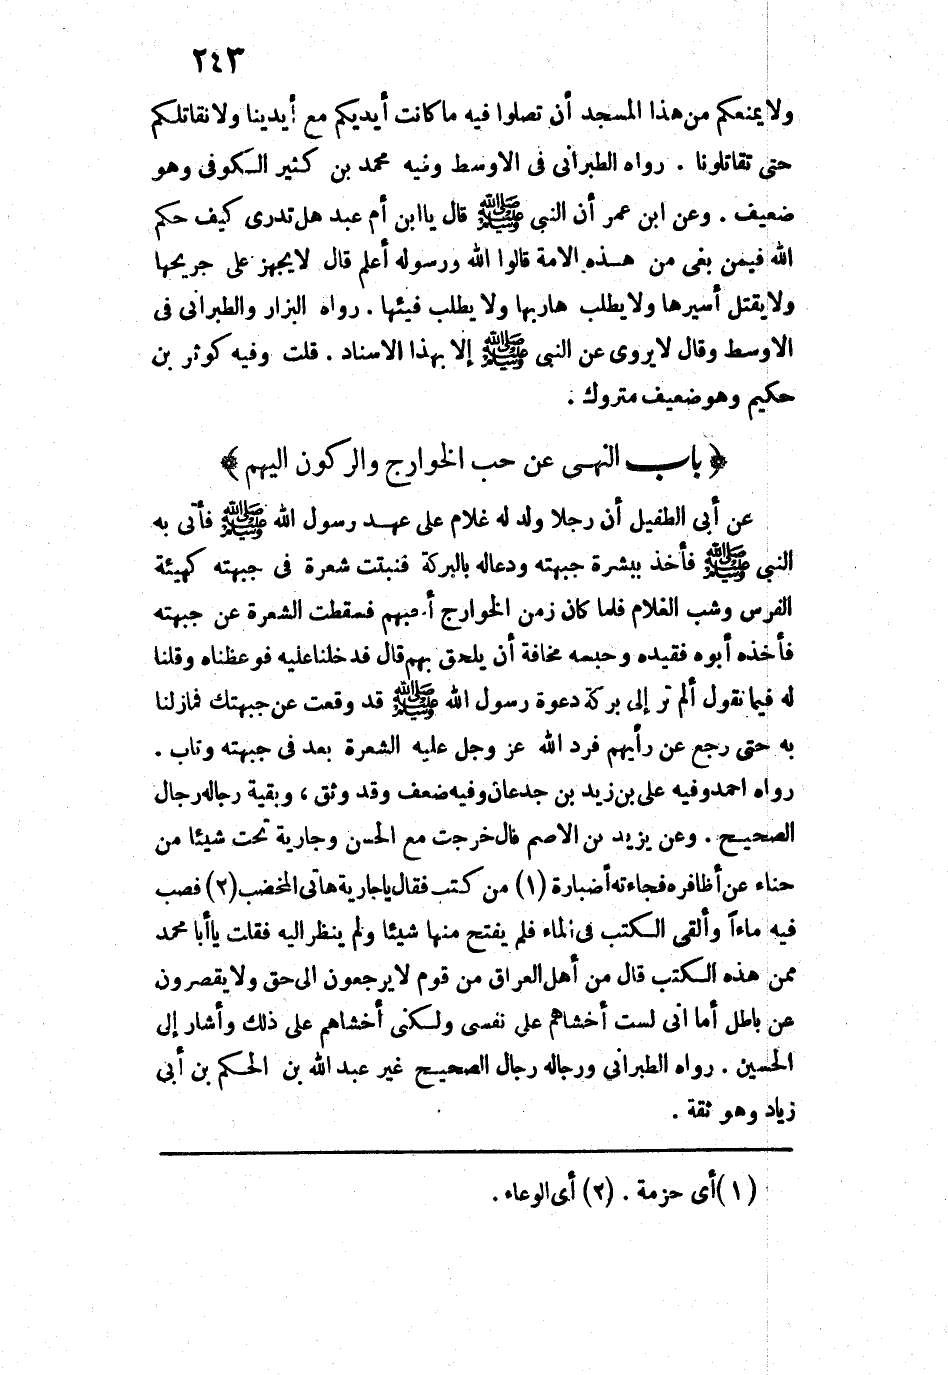 ٢٤٣
ولا يمنعكم من هذا المسجد أن تصلوا فيه ما كانت أيديكم مع أيدينا ولا نقاتلكم
حتى تقاتلونا . رواه الطبرانى فى الاوسط وفيه محمد بن كثير الكوفى وهو
ضعيف . وعن ابن عمر أن النبى ﷺ قال يا ابن أم عبد هل تدرى كيف حكم
الله فيمن بغى من هذه الامة قالوا الله ورسوله أعلم قال لا يجهز على جريحها
ولا يقتل أسيرها ولا يطلب هاربها ولا يطلب فيئها . رواه البزار والطبرانى فى
الاوسط وقال لا يروى عن النبى ﷺ إلا بهذا الاسناد . قلت وفيه كوثر بن
حكيم وهو ضعيف متروك .
﴿ باب النهى عن حب الخوارج والركون اليهم ﴾
عن أبى الطفيل أن رجلا ولد له غلام على عهد رسول الله ﷺ فأتى به
النبى ﷺ فأخذ ببشرة جبهته ودعا له بالبركة فنبتت شعرة فى جبهته كهيئة
الفرس وشب الغلام فلما كان زمن الخوارج أحبهم فسقطت الشعرة عن جبهته
فأخذه أبوه فقيده وحبسه مخافة أن يلحق بهم قال فدخلنا عليه فوعظناه وقلنا
له فيما نقول ألم تر إلى بركة دعوة رسول الله ﷺ قد وقعت عن جبهتك فما زلنا
به حتى رجع عن رأيهم فرد الله عز وجل عليه الشعرة بعد فى جبهته وتاب .
رواه احمد وفيه على بن زيد بن جدعان وفيه ضعف وقد وثق ، وبقية رجاله رجال
الصحيح . وعن يزيد بن الاصم قال خرجت مع الحسن وجارية تحت شيئا من
حناء عن أظافره فجاءته أضبارة (١) من كتب فقال يا جارية هاتى المخضب (٢) فصب
فيه ماءاً وألقى الكتب فى الماء فلم يفتح منها شيئا ولم ينظر اليه فقلت يا أبا محمد
ممن هذه الكتب قال من أهل العراق من قوم لا يرجعون الى حق ولا يقصرون
عن باطل أما انى لست أخشاهم على نفسى ولكنى أخشاهم على ذلك وأشار إلى
الحسين . رواه الطبرانى ورجاله رجال الصحيح غير عبد الله بن الحكم بن أبى
زياد وهو ثقة .
(١) أى حزمة . (٢) أى الوعاء .